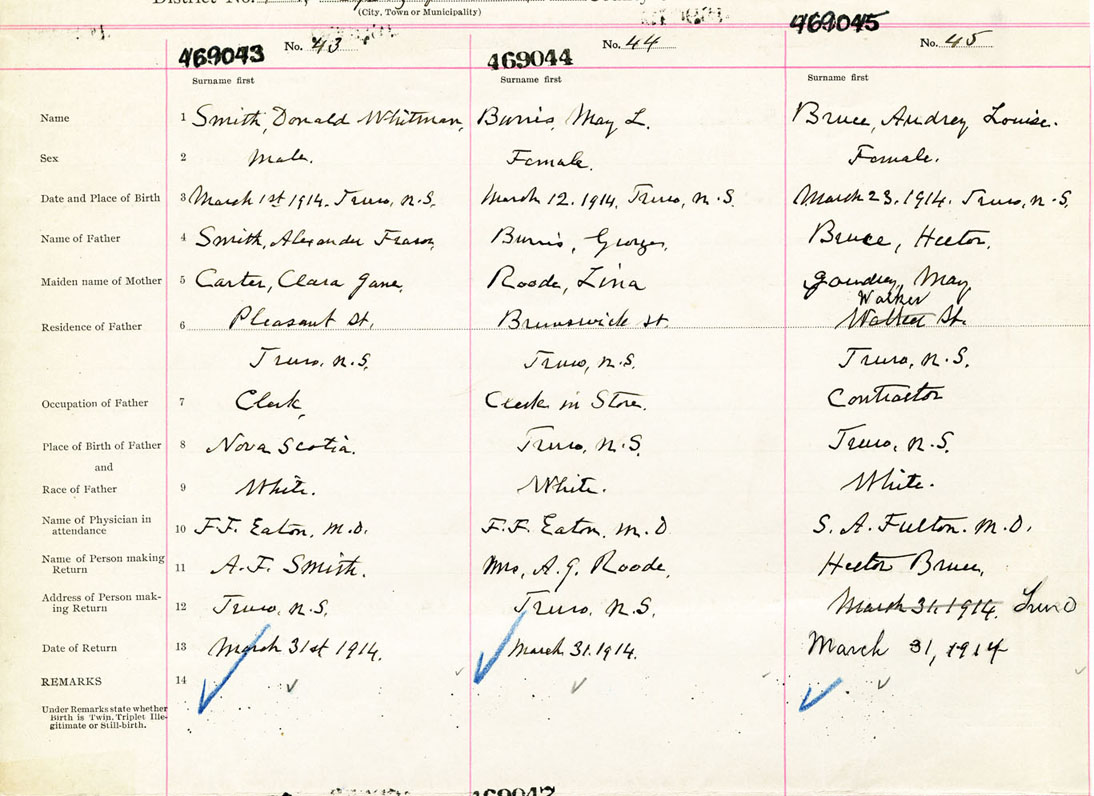 District No.
(City, Town or Municipality)
469043 No. 43
469044 No. 44
469045 No. 45
Surname first Surname first Surname first
Name 1 Smith, Donald Whitman, Burris, May L. Bruce, Audrey Louise.
Sex 2 Male. Female. Female.
Date and Place of Birth 3 March 1st 1914. Truro, N.S. March 12. 1914, Truro, N.S. March 23. 1914. Truro, N.S.
Name of Father 4 Smith, Alexander Fraser, Burris, George, Bruce, Hector.
Maiden name of Mother 5 Carter, Clara Jane, Roode, Lina May
Walker
Residence of Father 6 Pleasant St. Brunswick St. St.
Truro, N.S. Truro, N.S. Truro, N.S.
Occupation of Father 7 Clerk, Clerk in Store. Contractor
Place of Birth of Father 8 Nova Scotia. Truro, N.S. Truro, N.S.
and
Race of Father 9 White. White. White.
Name of Physician in attendance 10 F.F. Eaton, M.D. F.F. Eaton, M.D S. A. Fulton. M.D.
Name of Person making Return 11 A.F. Smith. Mrs, A.G. Roode, Hector Bruce,
Address of Person making Return 12 Truro, N.S. Truro, N.S. March 31. 1914. Truro
Date of Return 13 March 31st 1914. March 31. 1914. March 31, 1914
REMARKS 14
Under Remarks state whether
Birth is Twin, Triplet Ille-
gitimate or Still-birth.
469047